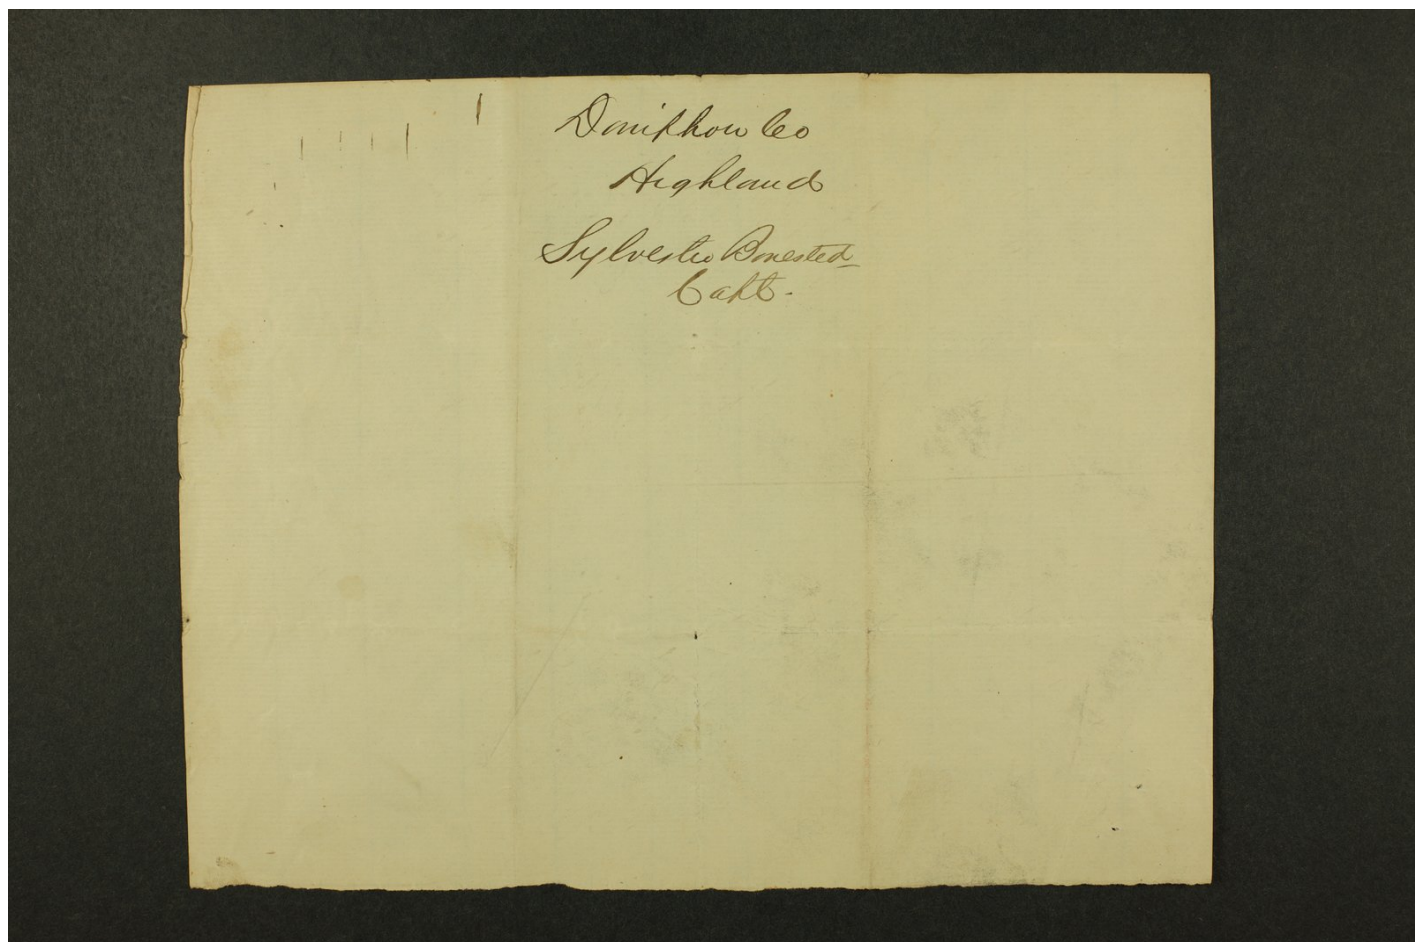 Doniphon Co
Highland
Sylvester Bonested
Capt.